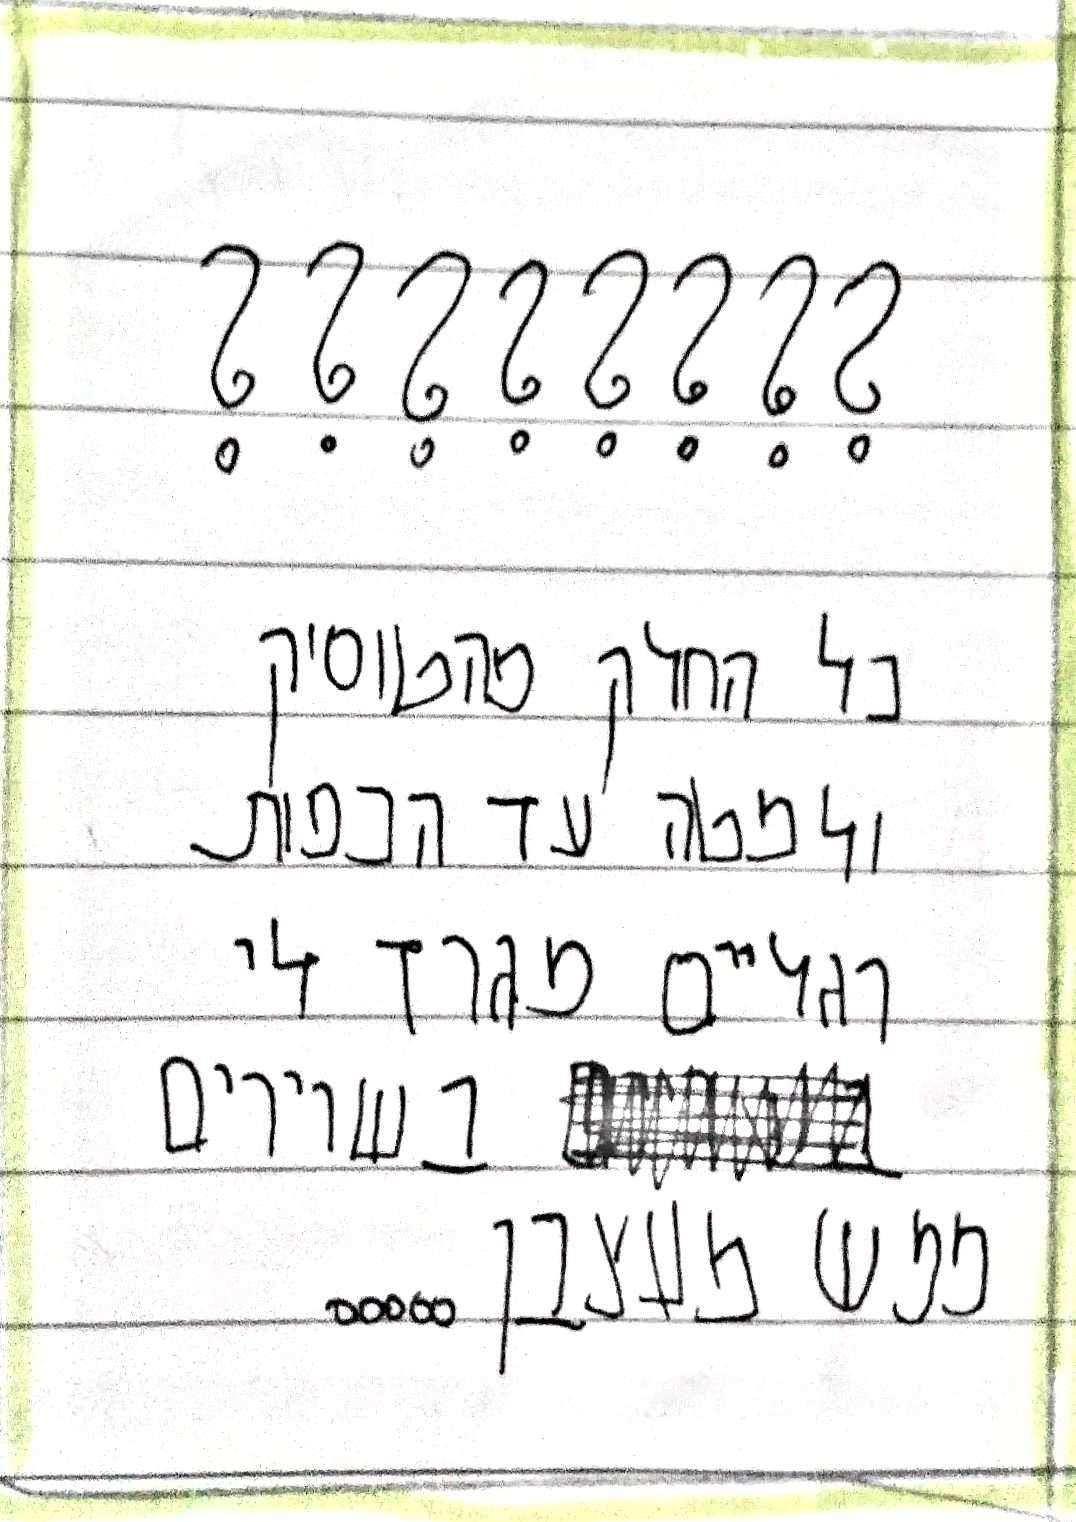 ؟؟؟؟؟؟؟؟
כל החלק מהטוסיק
ולמטה עד הכפות
רגליים מגרד לי
בשרירים
ממש מעצבן.....